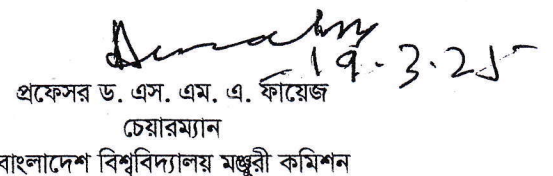 19.3.25
প্রফেসর ড. এস. এম. এ. ফায়েজ
চেয়ারম্যান
বাংলাদেশ বিশ্ববিদ্যালয় মঞ্জুরী কমিশন